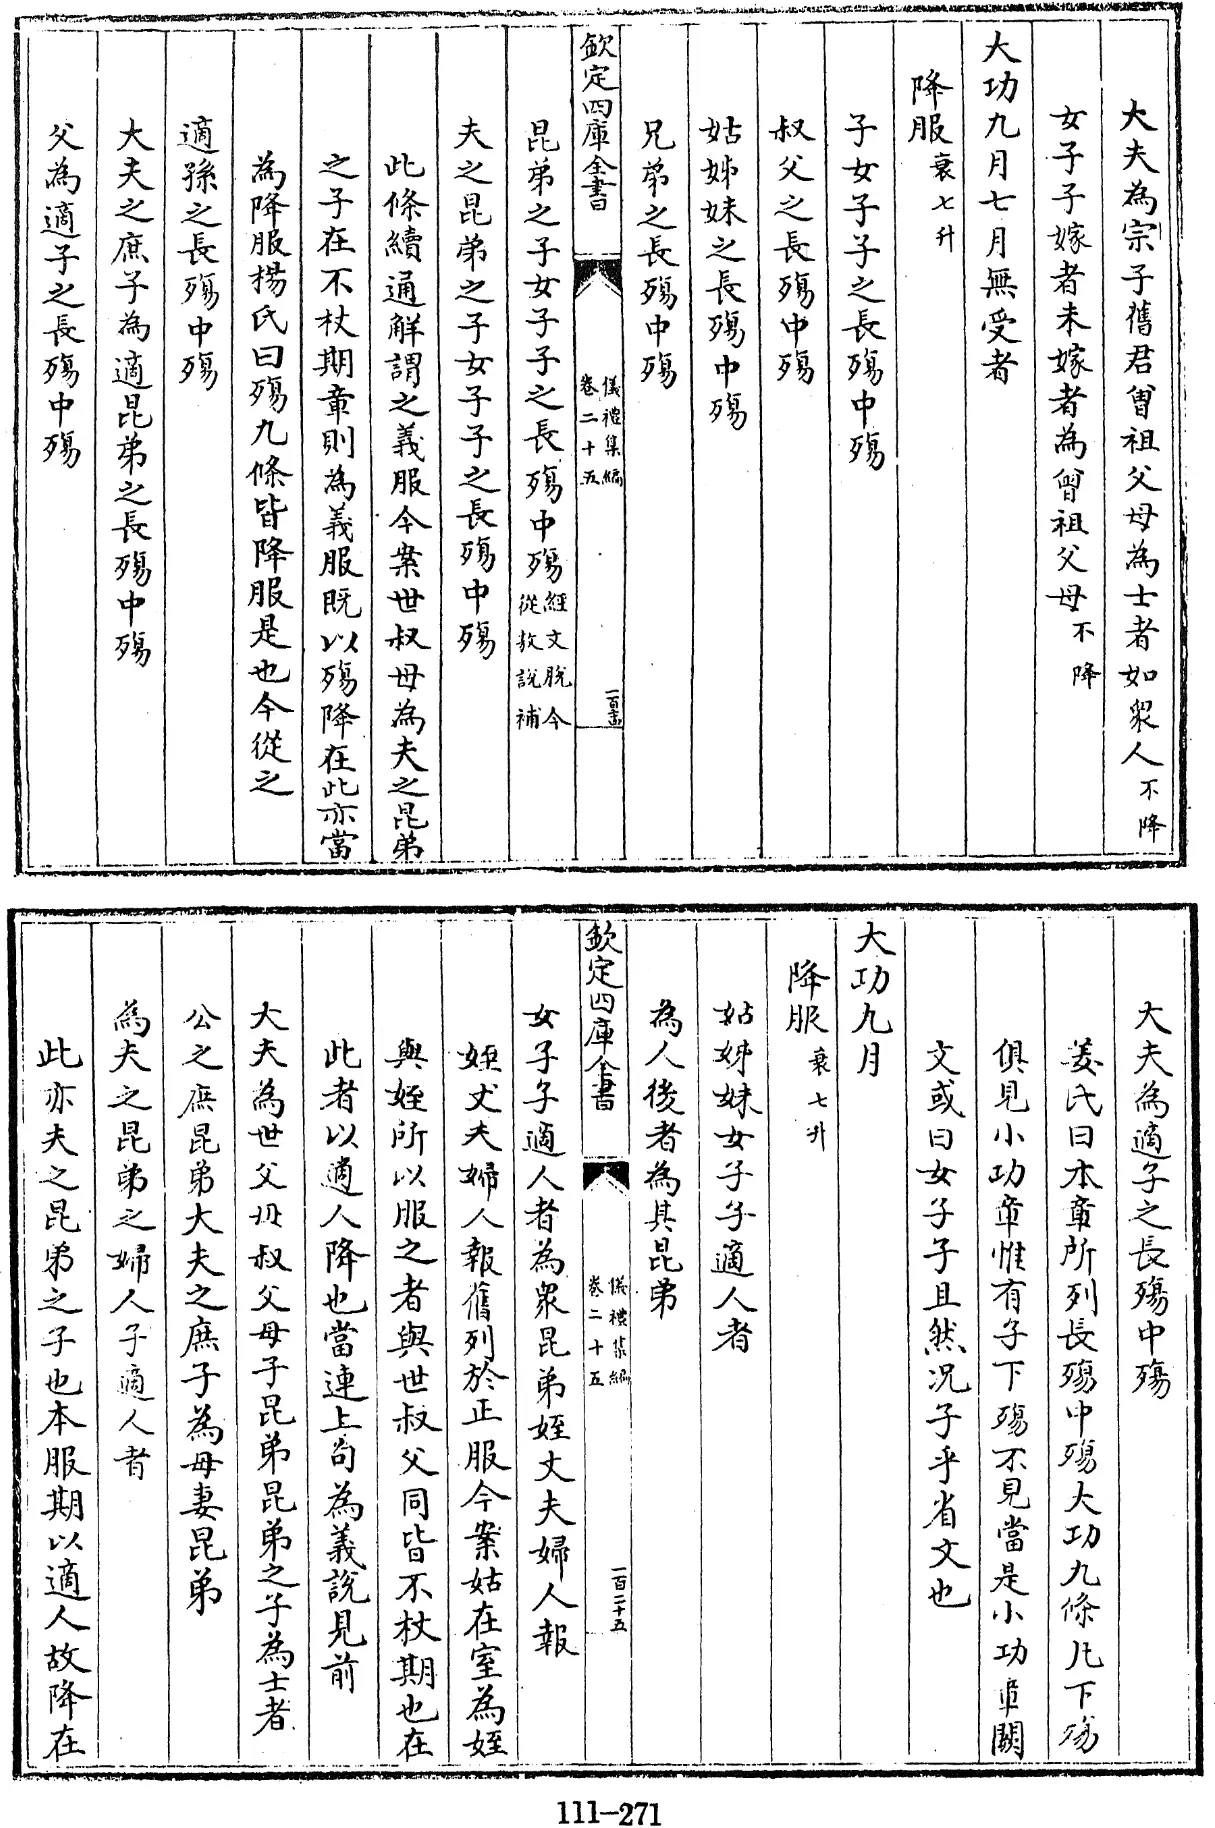 大夫為宗子舊君曾祖父母為士者如衆人不降
女子子嫁者未嫁者為曾祖父母不降
大功九月七月無受者
降服衰七升
子女子子之長殤中殤
叔父之長殤中殤
姑姊妹之長殤中殤
兄弟之長殤中殤
欽定四庫全書
儀禮集編
卷二十五
昆弟之子女子子之長殤中殤經文脫今從敖說補
夫之昆弟之子女子子之長殤中殤
此條續通解謂之義服今案世叔母為夫之昆弟
之子在不杖期章則為義服既以殤降在此亦當
為降服楊氏曰殤九條皆降服是也今從之
適孫之長殤中殤
大夫之庶子為適昆弟之長殤中殤
父為適子之長殤中殤
大夫為適子之長殤中殤
姜氏曰本章所列長殤中殤大功九條凡下殤
俱見小功章惟有子下殤不見當是小功章闕
文或曰女子子且然况子乎省文也
大功九月
降服衰七升
姑姊妹女子子適人者
為人後者為其昆弟
欽定四庫全書
儀禮集編
卷二十五
一百二十五
女子子適人者為衆昆弟姪丈夫婦人報
姪丈夫婦人報舊列於正服今案姑在室為姪
與姪所以服之者與世叔父同皆不杖期也在
此者以適人降也當連上句為義說見前
大夫為世父母叔父母子昆弟昆弟之子為士者
公之庶昆弟大夫之庶子為母妻昆弟
為夫之昆弟之婦人子適人者
此亦夫之昆弟之子也本服期以適人故降在
111-271